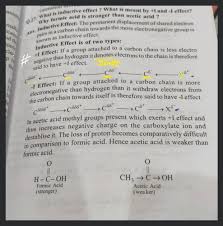 What is inductive effect ? What is meant by +I and -I effect?
Why formic acid is stronger than acetic acid ?
Ans. Inductive Effect: The permanent displacement of shared electron
pair in a carbon chain towards the more electronegative group is
known as inductive effect.
Inductive Effect is of two types:
+I Effect: If a group attached to a carbon chain is less electro
negative than hydrogen it donates electrons to the chain is therefore
to have +I effect.
-I Effect: If a group attached to a carbon chain is more
electronegative than hydrogen than it withdraw electrons from
the carbon chain towards itself is therefore said to have -I effect
In acetic acid methyl groups present which exerts +I effect and
thus increases negative charge on the carboxylate ion and
destablise it. The loss of proton becomes comparatively difficult
in comparison to formic acid. Hence acetic acid is weaker than
formic acid.
O O
H – C – OH CH₃ → C → OH
Formic Acid Acetic Acid
(stronger) (weaker)